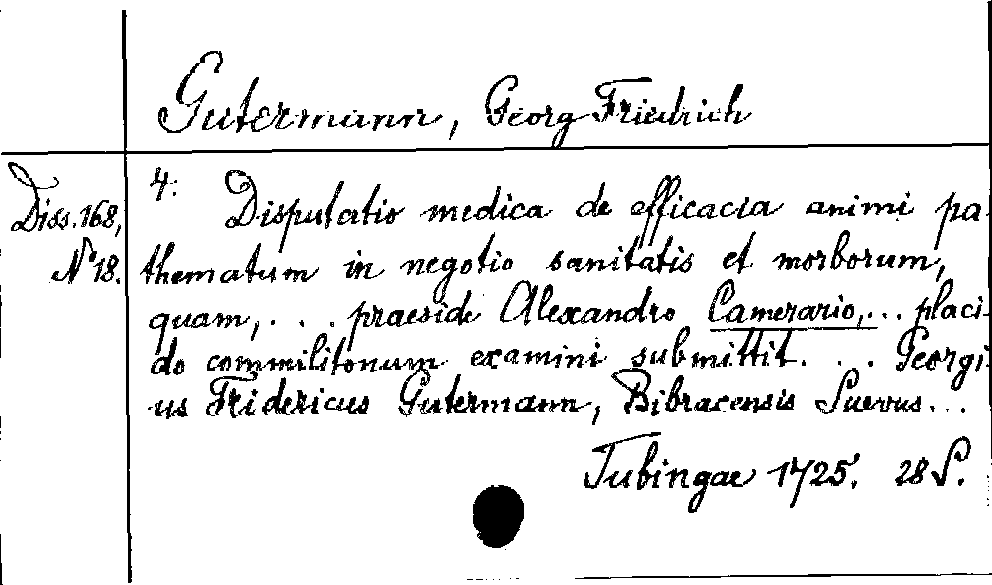 Gutermann, Georg Friedrich
Diss. 168,
N° 18.
4. Disputatio medica de efficacia animi pa-
thematum in negotio sanitatis et morborum,
quam, . . . praeside Alexandro Camerario, ... placi-
do commilitonum examini submittit . . . Georgi-
us Fridericus Gutermann, Bibracensis Suevus...
Tubingae 1725. 28 S.